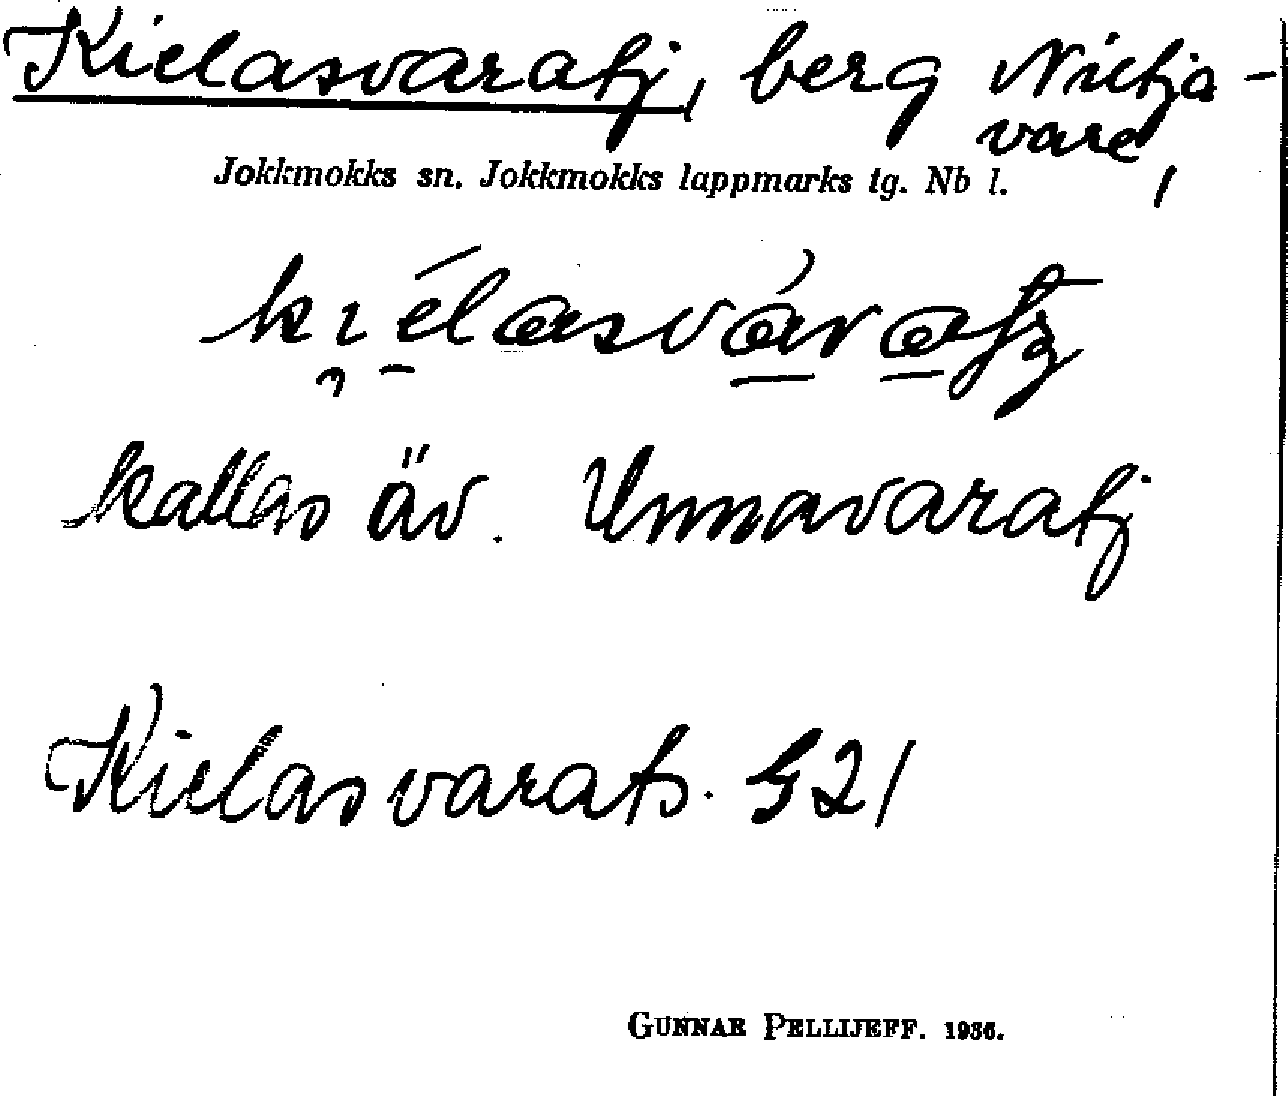 Kielasvaratj, berg Nietja-
vare,
Jokkmokks sn. Jokkmokks lappmarks tg. Nb l.
kallas äv. Unnavaratj
Kielasvarats. G21
GUNNAR PELLIJEFF. 1936.